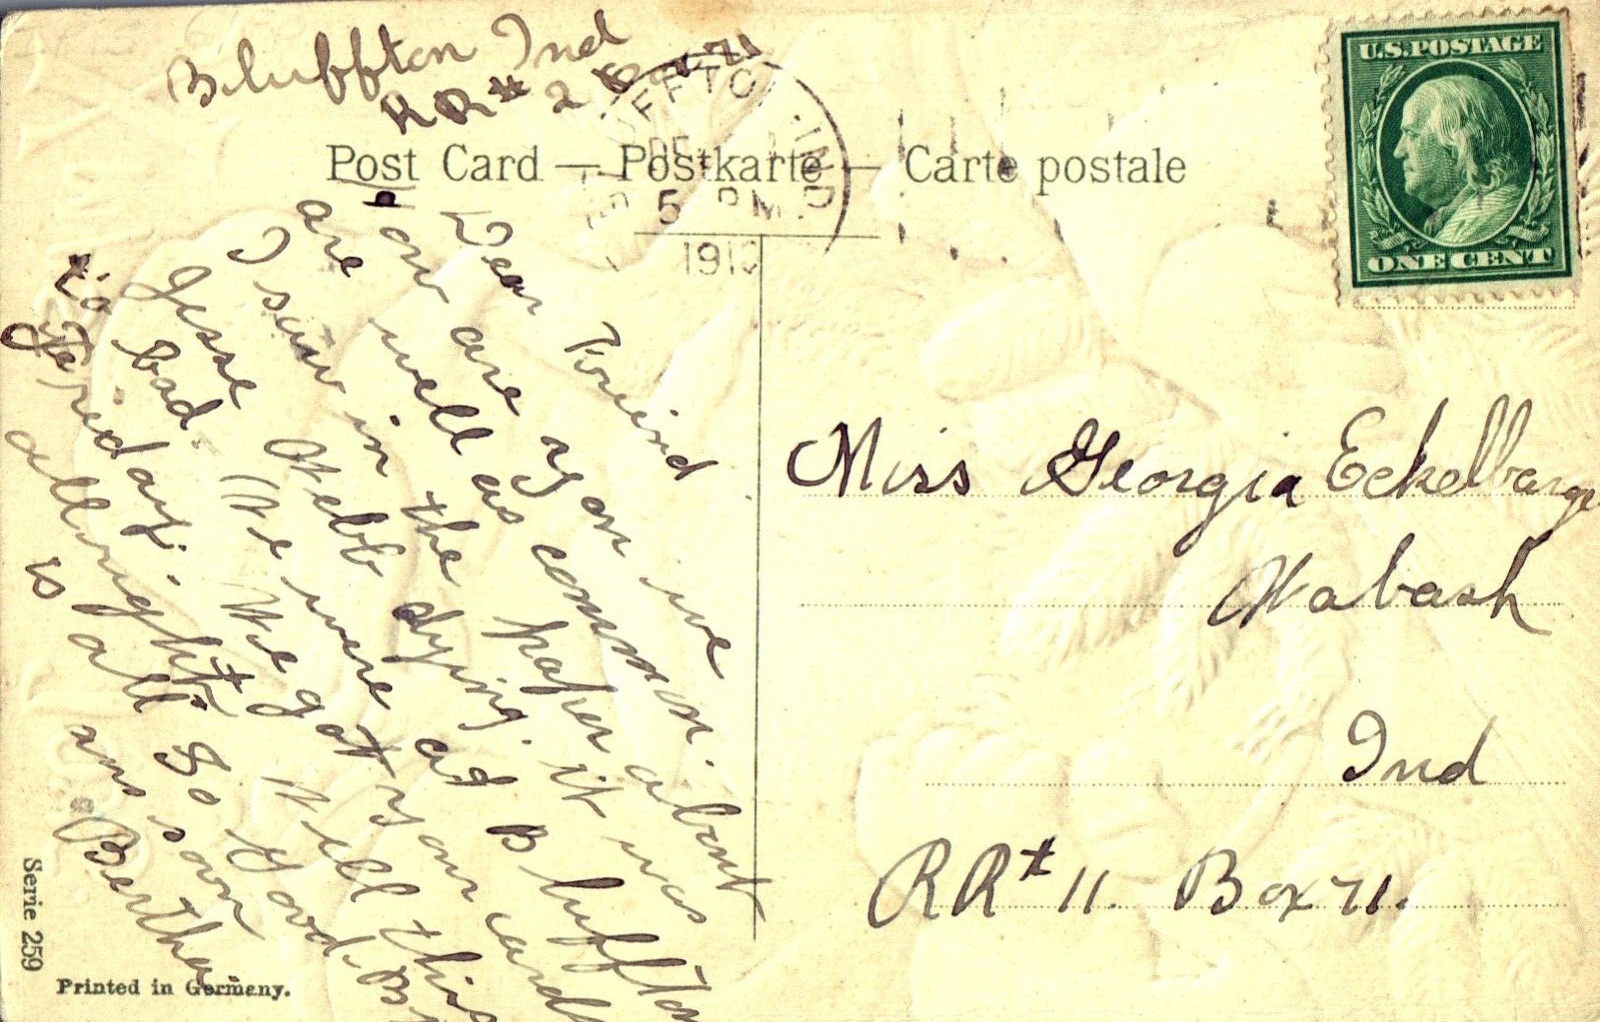 Bluffton Ind
RR# 2 Box 71
BLUFFTON, IND.
5 PM
191
U.S. POSTAGE
ONE CENT
Post Card — Postkarte — Carte postale
Dear Friend
How are you we
are well as common.
I saw in the paper about
Jesse Webb dying. it was
to bad. We were at Bluffton
Friday. We got your card
allright. Well this
is all So Good By
ans soon
Bertha
Miss Georgia Eckelbarge
Wabash
Ind
RR# 11. Box 71.
Serie 259
Printed in Germany.